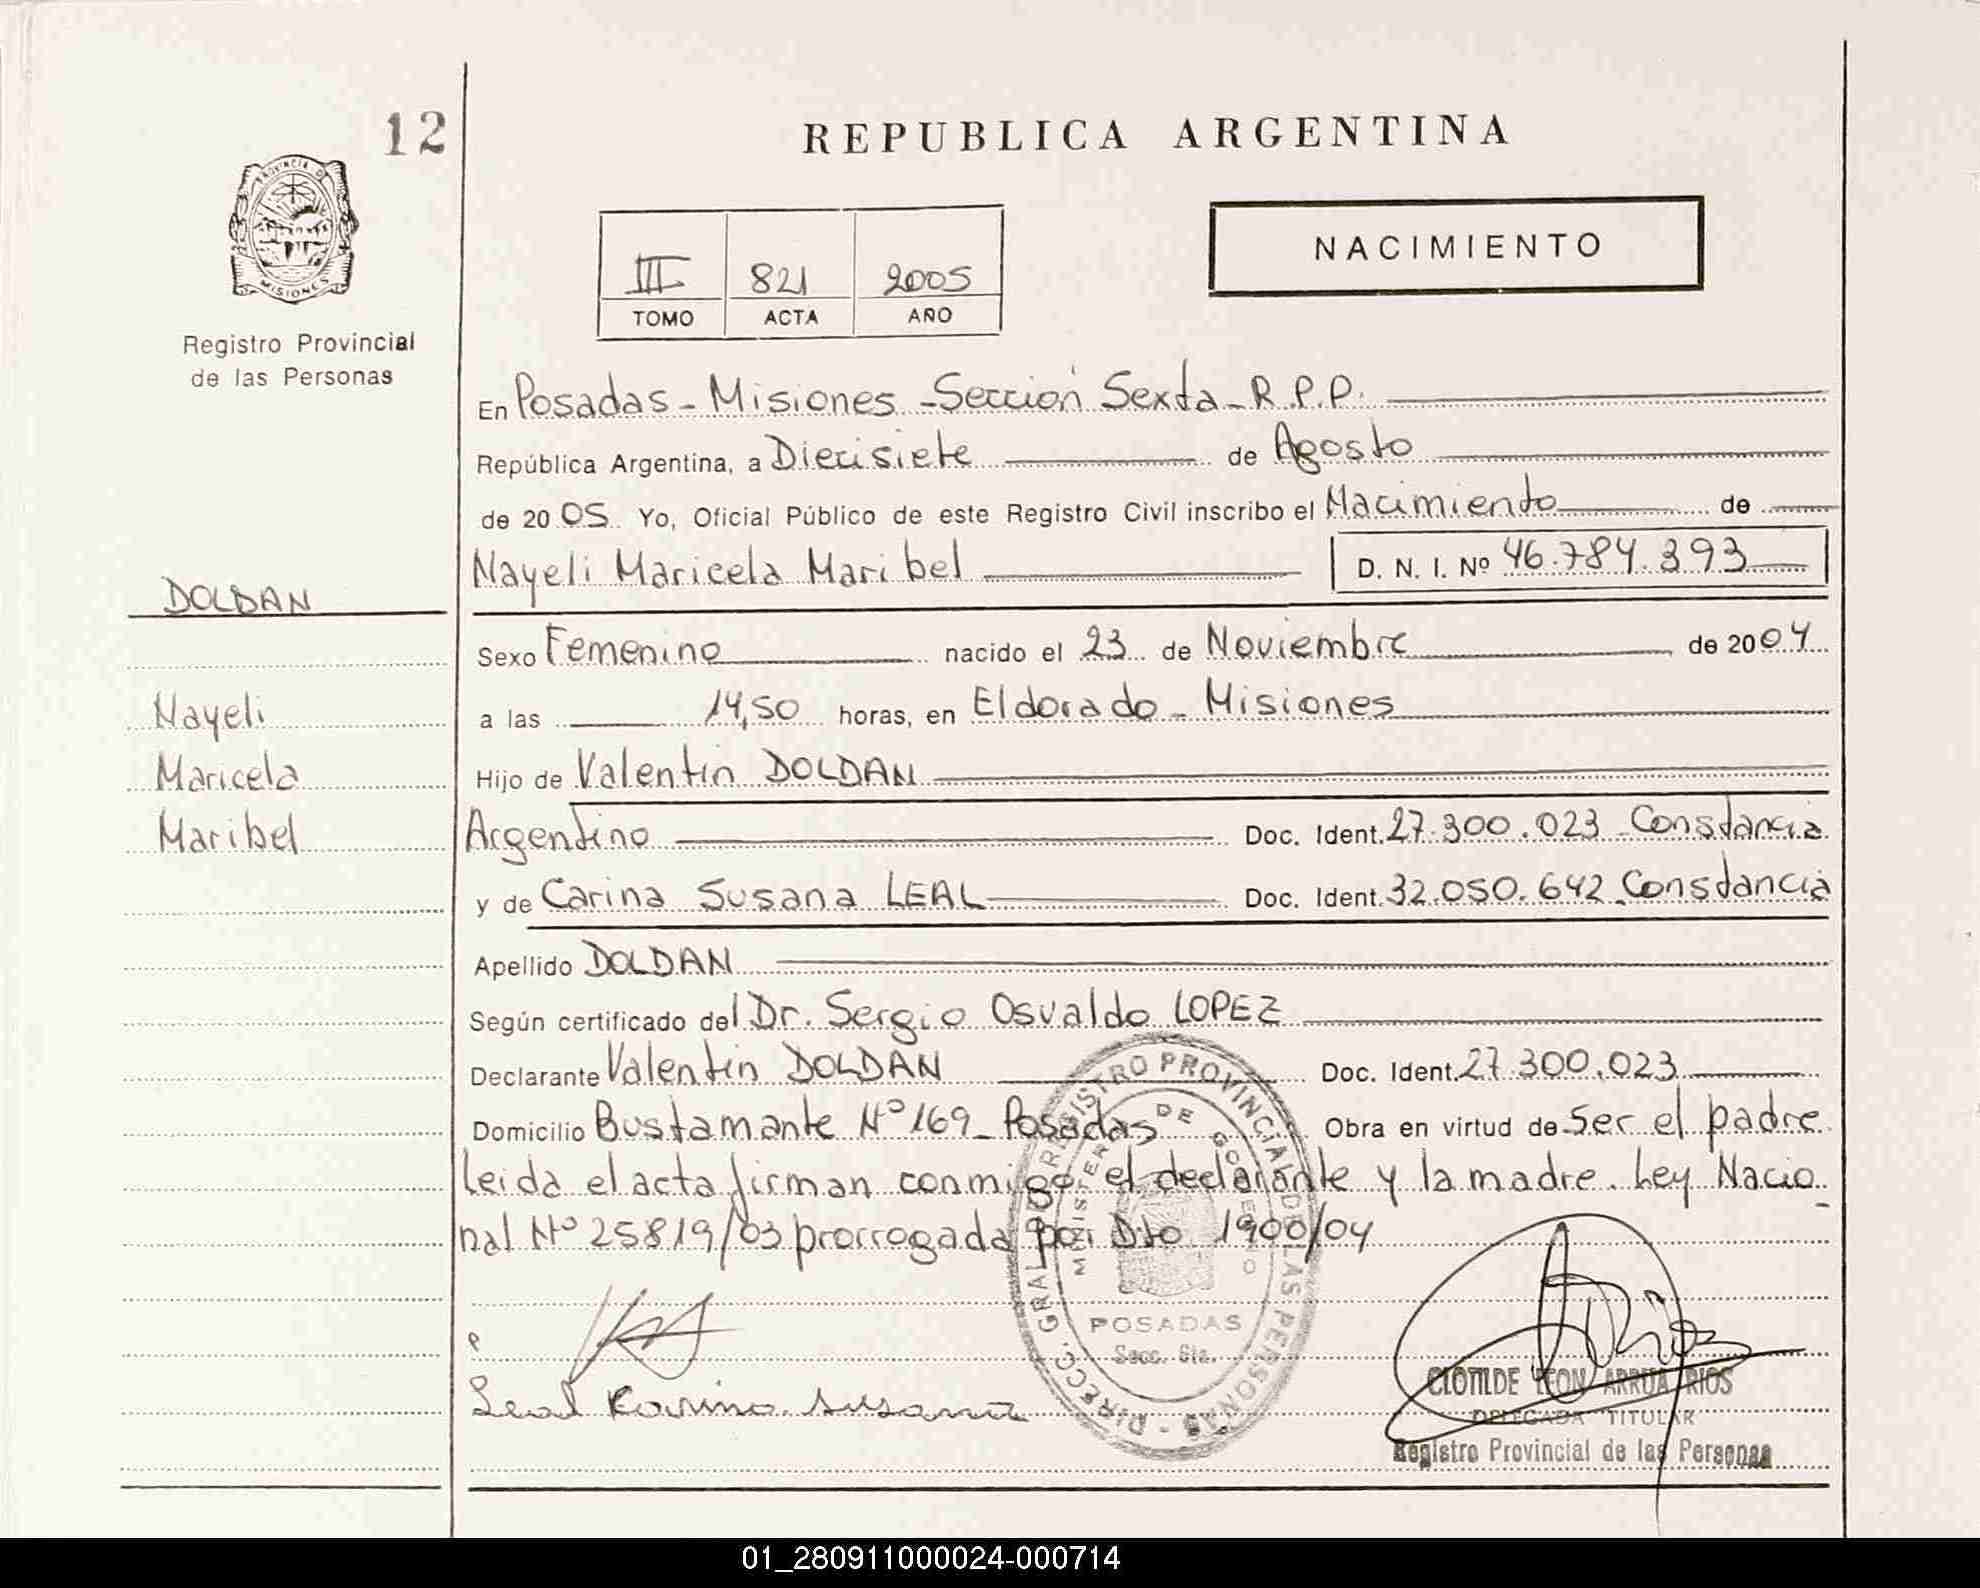 12
REPUBLICA ARGENTINA
PROVINCIA DE
MISIONES
Registro Provincial
de las Personas
NACIMIENTO
III 821 2005
TOMO ACTA AÑO
En Posadas - Misiones - Sección Sexta - R.P.P.
República Argentina, a Diecisiete de Agosto
de 2005 Yo, Oficial Público de este Registro Civil inscribo el Nacimiento de
Nayeli Maricela Maribel D. N. I. Nº 46.784.393
DOLDAN
Sexo Femenino nacido el 23 de Noviembre de 2004
Nayeli
a las 14,50 horas, en Eldorado - Misiones
Maricela
Hijo de Valentin DOLDAN
Maribel
Argentino Doc. Ident. 27.300.023 Constancia
y de Carina Susana LEAL Doc. Ident. 32.050.642 Constancia
Apellido DOLDAN
Según certificado del Dr. Sergio Osvaldo LOPEZ
Declarante Valentin DOLDAN Doc. Ident. 27.300.023
Domicilio Bustamante Nº 169 - Posadas Obra en virtud de ser el padre
leida el acta firman conmigo el declarante y la madre. Ley Nacio
nal Nº 25819/03 prorrogada por Dto 1900/04
DIRECC. GRAL. DE REGISTRO PROVINCIAL DE LAS PERSONAS
MINISTERIO DE GOBIERNO
POSADAS
Secc. 6ta.
Leal Karina Susana
CLOTILDE LEON ARRUA RIOS
DELEGADA TITULAR
Registro Provincial de las Personas
01_280911000024-000714